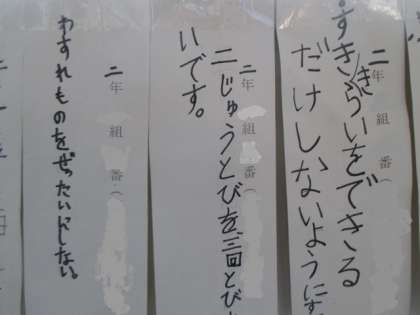 二年 組 番(
すききらいをできる
だけしないようにす
二年 組 番(
二じゅうとびを、三回とび
いです。
二年 組 番(
わすれものをぜったいにしない。